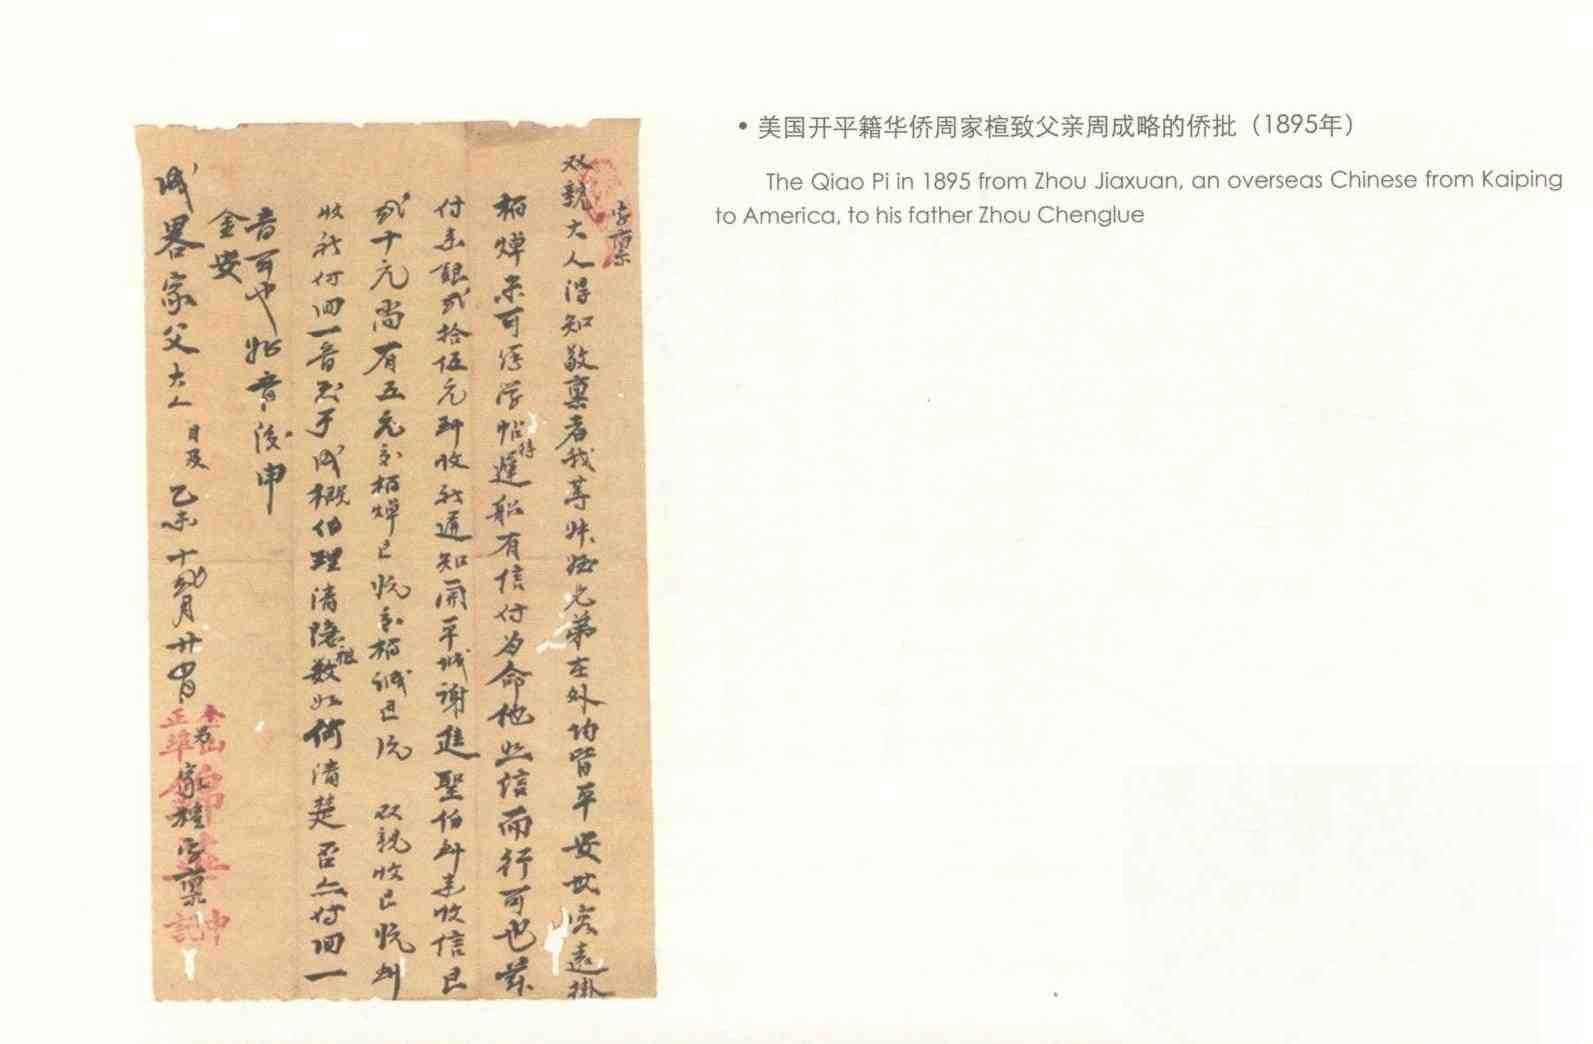 美国开平籍华侨周家楦致父亲周成略的侨批（1895年）
The Qiao Pi in 1895 from Zhou Jiaxuan, an overseas Chinese from Kaiping
to America, to his father Zhou Chenglue
字稟
双親大人得知敬稟者我等妹好兄弟在外均皆平安 遠掛
栢燁 可 學帖得遲船有信付為命他 信而行可也
付來銀弍拾伍元 收 通知開平城謝進聖伯 來收信
弍十元尚有五元 栢燁 栢誠 双親收
收 付回一音 于成概伯理清隐祖数 何清楚否 付回一
音可也 音後申
金安
成畧家父大人 日及 乙未十弍月廿 日 家楦 字稟
金山
正埠